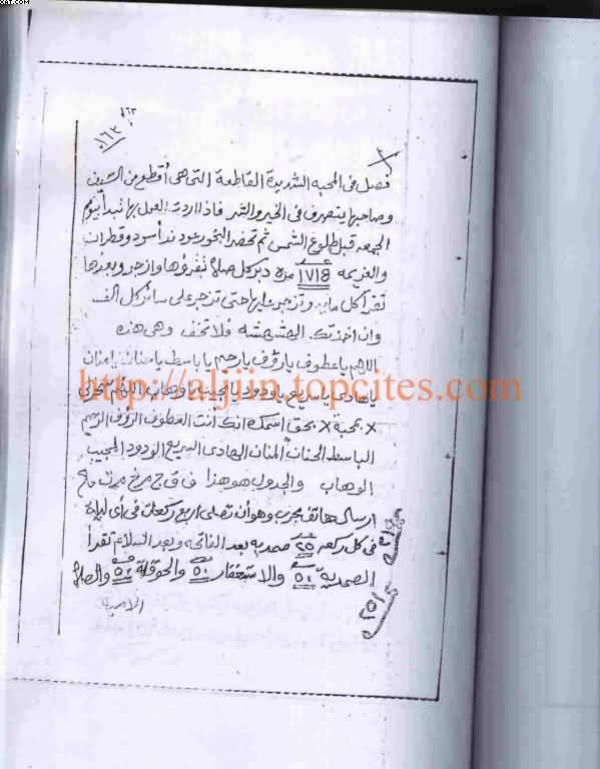 ١٦٣
١٦٣
فصل فى المحبه الشديدة القاطعة التى هى أقطع من السيف
وصاحبها يتصرف فى الخير والشر فاذا اردت العمل بها تبدأ يوم
الجمعه قبل طلوع الشمس ثم تحضر البخور عود ند أسود وقطران
والعزيمه مره دبر كل صلاة تقرؤها وازجر وبعدها
تقرأ كل مايه وتزجر عليها حتى تزجر على سائر كل الف
وان اخذتك فلا تخف وهى هذه
اللهم يا عطوف يا رؤف يا رحيم يا باسط يا حنان يا منان
يا هادى يا سريع يا ودود يا مجيب يا وهاب اللهم
بمحبة بحق اسمك انك انت العطوف الرؤف الرحيم
الباسط الحنان المنان الهادى السريع الودود المجيب
الوهاب والجدول هو هذا
ارسال هاتف مجرب وهو أن تصلى اربع ركعات فى أى ليلة
فى كل ركعه ٢٥ صمديه بعد الفاتحه وبعد السلام تقرأ
الصمدية ٥١ والاستغفار ٥١ والحوقلة والصلاة
http://aljiin.topcites.com